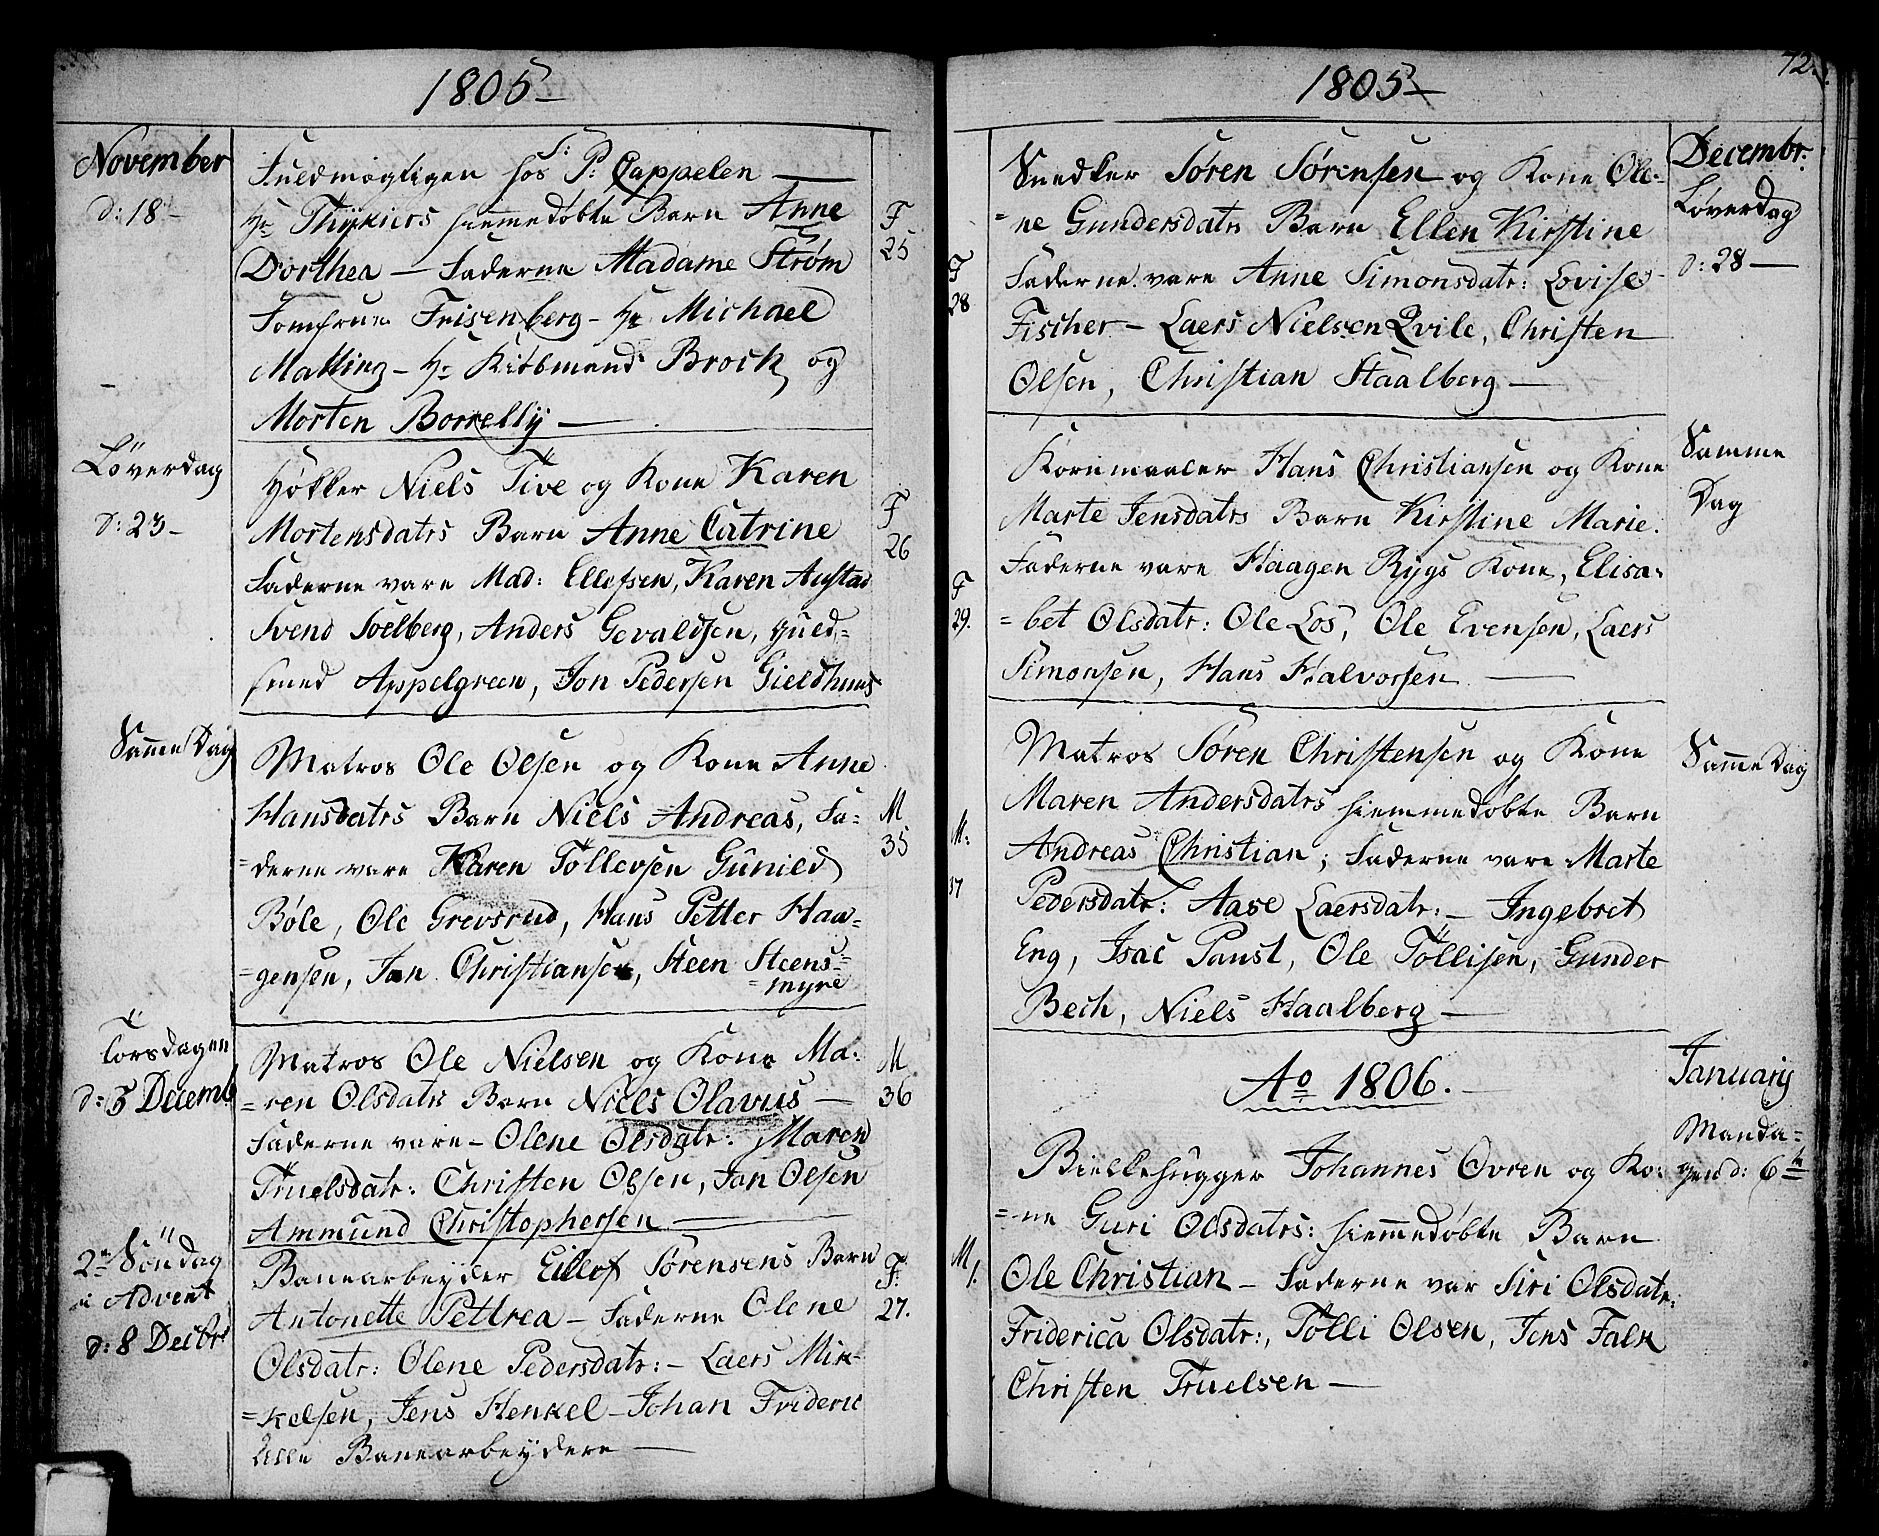 1805
November
d: 18
Fuldmægtigen hos S: P: Cappelen
Hr Thykiers hiemmedøbte Barn Anne
Dorthea — Faderne Madame Strøm
Jomfrue Frisenberg — Hr Michael
Malling — Hr Kiøbmand Brock og
Morten Borrelly —
F
25
Løverdag
d: 23
Høkker Niels Tive og Kone Karen
Mortensdatrs Barn Anne Catrine
Faderne vare Mad: Ellefsen, Karen Austad
Svend Soelberg, Anders Gevaldsen, Guld-
smed Appelgreen, Jon Pedersen Gieldhuus
F
26
Samme Dag
Matros Ole Olsen og Kone Anne
Hansdatrs Barn Niels Andreas, Fa-
=derne vare Karen Tollevsen Gunild
Bøle, Ole Grevsrud, Hans Petter Haa-
=gensen, Jan Christiansen, Steen Steens=
=myre
M
35
Torsdagen
d: 5 Decemb
Matros Ole Nielsen og Kone Ma-
=ren Olsdatrs Barn Niels Olavus —
Faderne vare — Olene Olsdatr: Maren
Truelsdatr: Christen Olsen, Jan Olsen
Ammund Christophersen
M
36
2n Søndag
i Advent
d: 8 Decbr
Banearbeyder Eilef Sørensens Barn
Antonette Pettrea — Faderne Olene
Olsdatr: Olene Pedersdatr: — Laers Mik-
=kelsen, Jens Henkel — Johan Frideric
Alle Banearbeydere —
F:
27.
1805
72.
Decembr.
Løverdag
d: 28 —
Snedker Søren Sørensen og Kone Ole-
=ne Gundersdatrs Barn Ellen Kirstine
Faderne vare Anne Simonsdatr: Lovise
Fischer — Laers Nielsen Qvile, Christen
Olsen, Christian Staalberg —
F
28
Samme
Dag
Kornmaaler Hans Christiansen og Kone
Marte Jensdatrs Barn Kirstine Marie.
Faderne vare Haagen Rygs Kone, Elisa-
=bet Olsdatr: Ole Los, Ole Evensen, Laers
Simonsen, Hans Halvorsen —
F
29.
Samme Dag
Matros Søren Christensen og Kone
Maren Andersdatrs hiemmedøbte Barn
Andreas Christian; Faderne vare Marte
Pedersdatr: Aase Laersdatr: — Ingebret
Eng, Isac Paust, Ole Tollisen, Gunder
Bech, Niels Haalberg —
M:
37
Ao 1806.
January
Manda=
gen d: 6te
Bielkehugger Johannes Øvren og Ko-
=ne Guri Olsdatrs: hiemmedøbte Barn
Ole Christian — Faderne var Siri Olsdatr:
Friderica Olsdatr:, Tolli Olsen, Jens Falk
Christen Truelsen —
M
1.